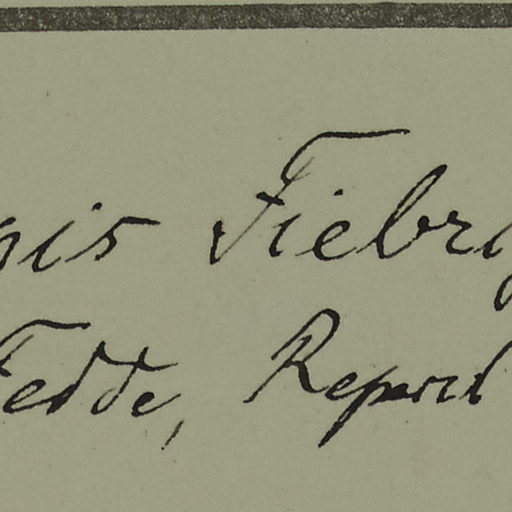 is Fiebrig
Fedde, Repert